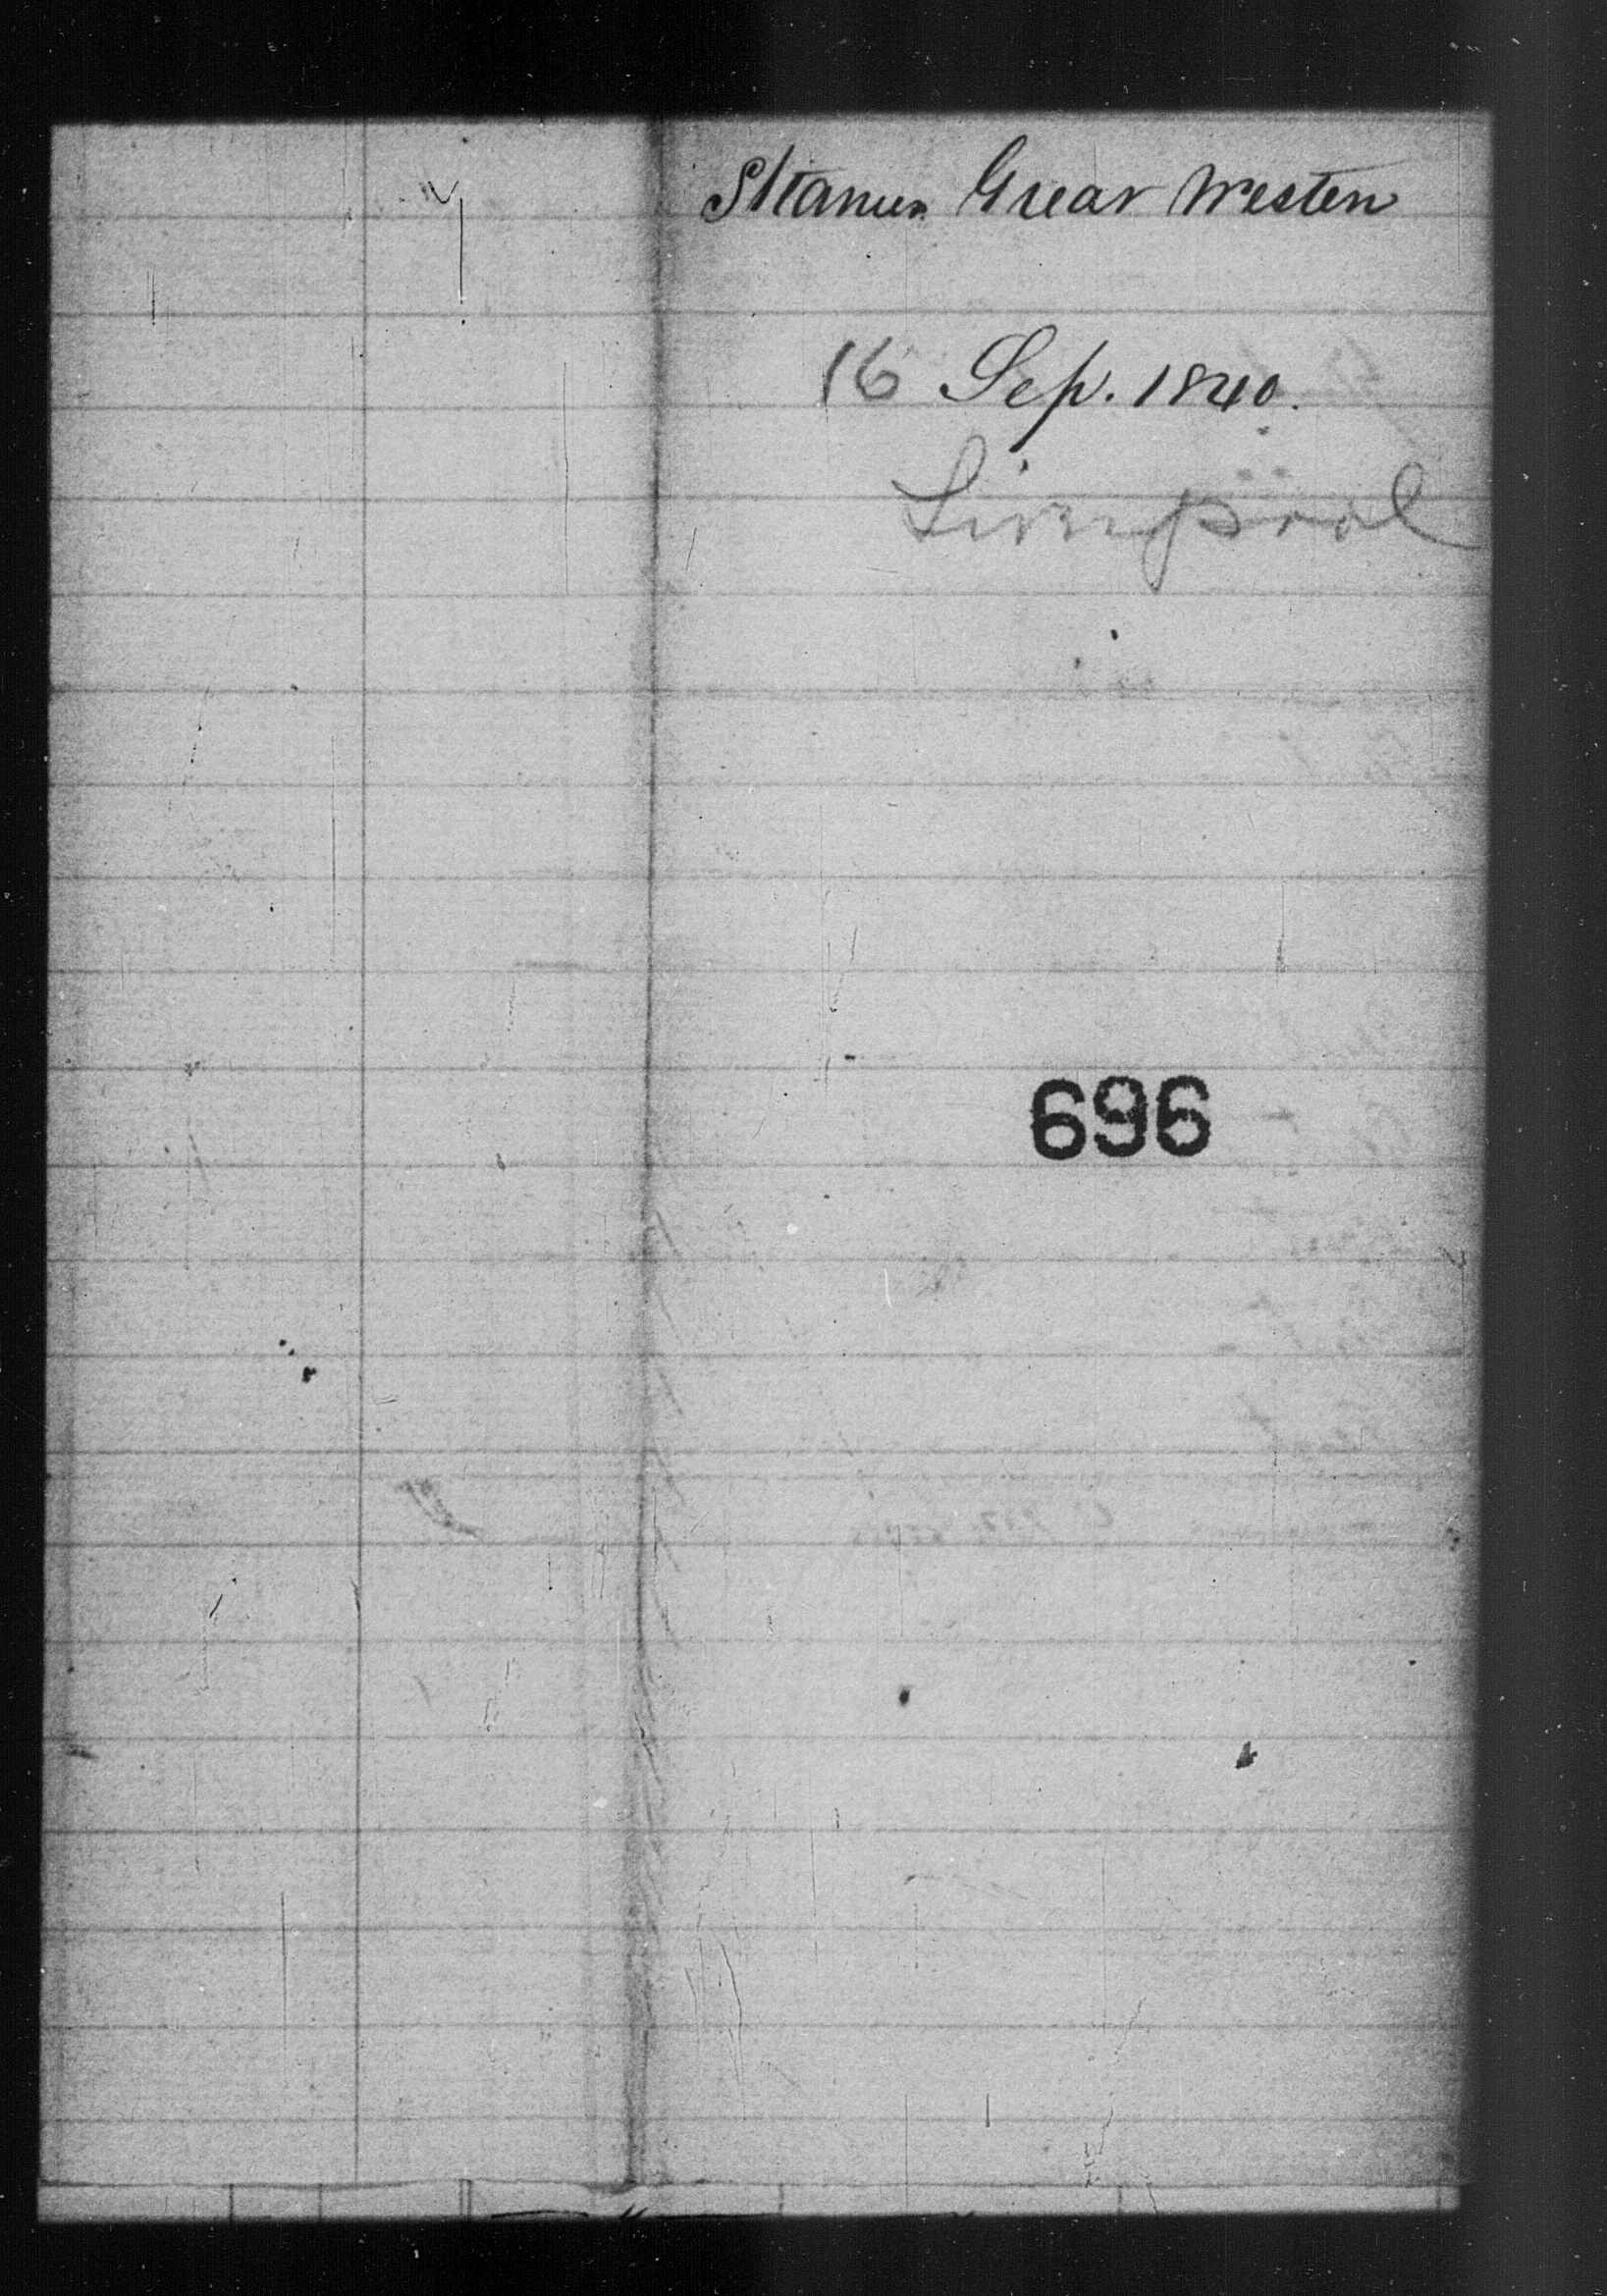 Steamer Great Western
16 Sep. 1840.
Liverpool
696